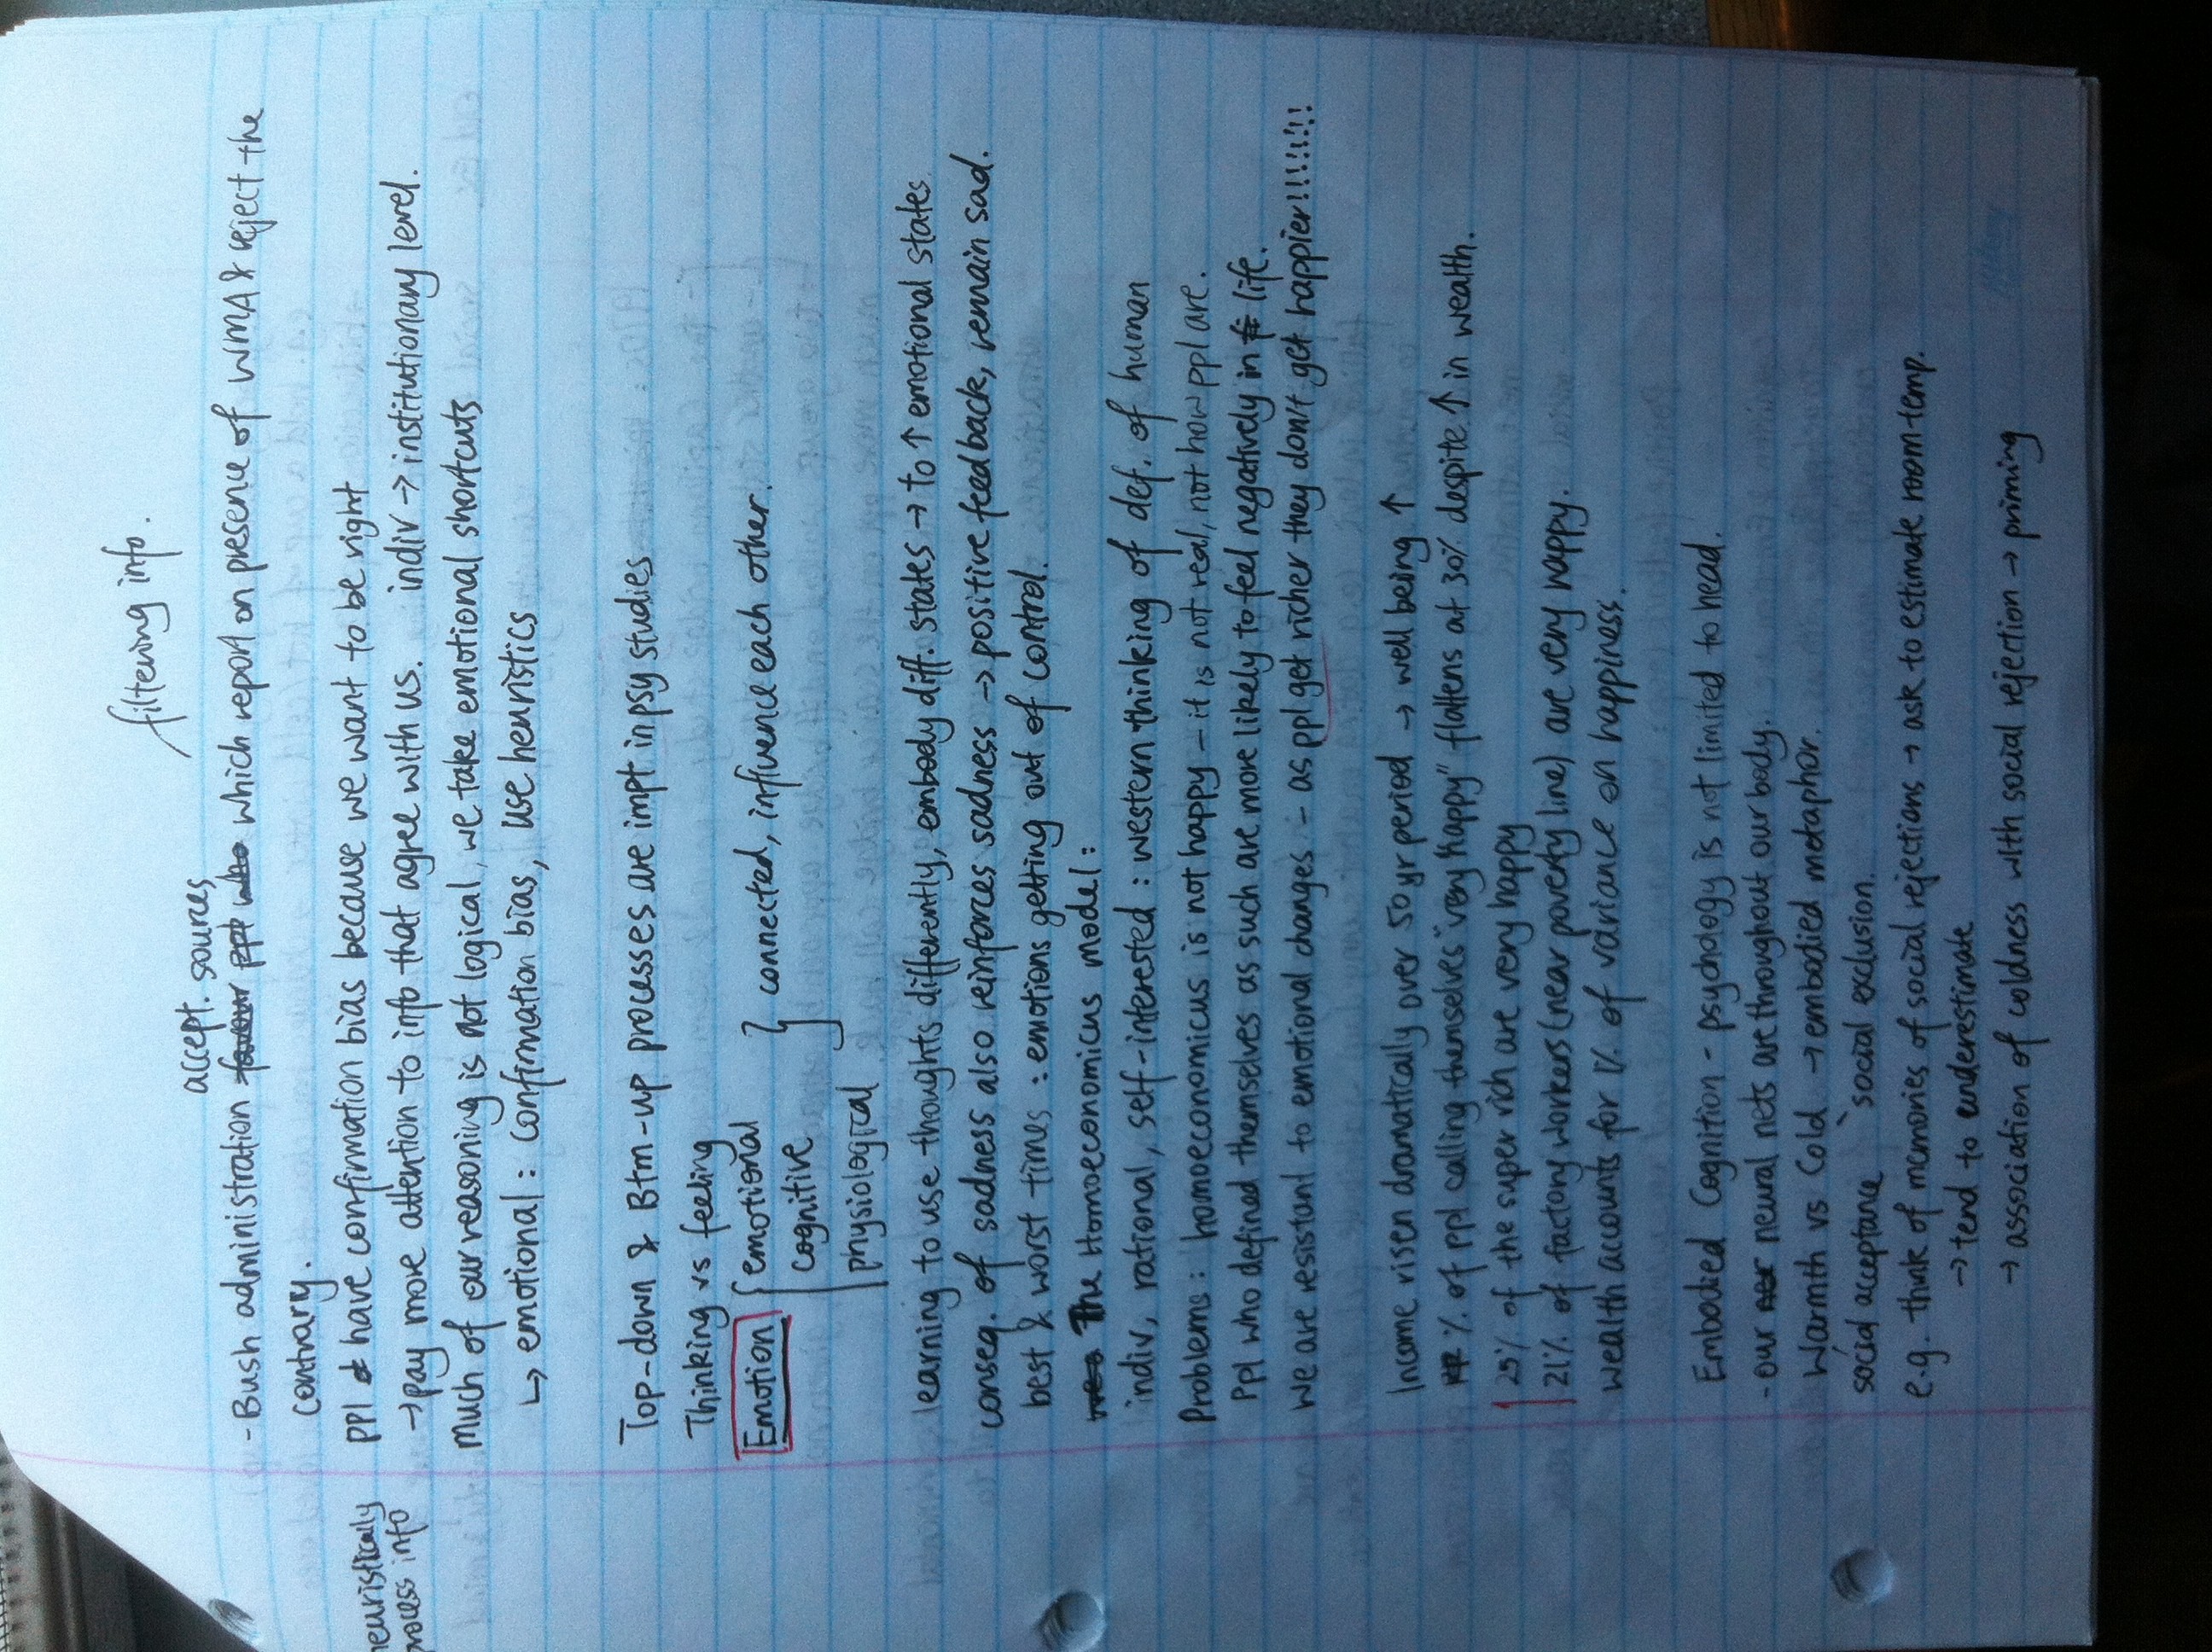 filtering info.
accept. sources
- Bush administration which report on presence of WMA & reject the
contrary.
ppl have confirmation bias because we want to be right
heuristically
process info
→ pay more attention to info that agree with us. indiv → institutionary level.
Much of our reasoning is not logical, we take emotional shortcuts
↳ emotional: confirmation bias, use heuristics
Top-down & Btm-up processes are impt in psy studies
Thinking vs feeling
Emotion { emotional
cognitive
physiological } connected, influence each other.
learning to use thoughts differently, embody diff. states → to ↑ emotional states
conseq. of sadness also reinforces sadness → positive feedback, remain sad.
best & worst times: emotions getting out of control.
The Homoeconomicus model:
indiv, rational, self-interested: western thinking of def. of human
Problems: homoeconomicus is not happy – it is not real, not how ppl are.
Ppl who defined themselves as such are more likely to feel negatively in life.
we are resistant to emotional changes - as ppl get richer they don't get happier!!!!!!
Income risen dramatically over 50 yr period → well being ↑
% of ppl calling themselves "very happy" flattens at 30% despite ↑ in wealth.
25% of the super rich are very happy
21% of factory workers (near poverty line) are very happy.
wealth accounts for 1% of variance on happiness.
Embodied Cognition - psychology is not limited to head.
- our neural nets are throughout our body.
Warmth vs Cold → embodied metaphor.
social acceptance social exclusion.
e.g. think of memories of social rejections → ask to estimate room temp.
→ tend to underestimate
→ association of coldness with social rejection → priming